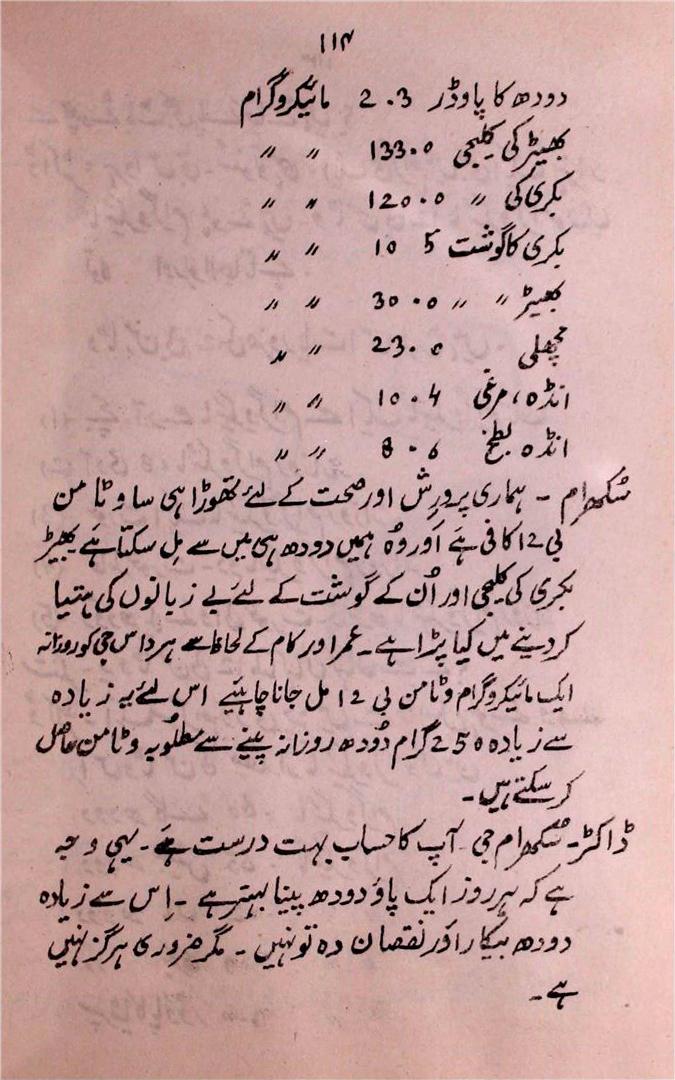 ۱۱۴
دودھ کا پاوڈر 2.3 مائیکروگرام
بھیڑ کی کلیجی 133.0 〃 〃
بکری کی 〃 120.0 〃 〃
بکری کا گوشت 10 5 〃 〃
بھیڑ 〃 〃 30.0 〃 〃
مچھلی 23.0 〃 〃
انڈہ، مرغی 10.4 〃 〃
انڈہ بطخ 8.6 〃 〃
سُکھرام - ہماری پرورِش اور صحت کے لئے تھوڑا ہی سا وٹامن
بی 12 کافی ہے اَور وُہ ہمیں دودھ ہی میں سے مِل سکتا ہے بھیڑ
بکری کی کلیجی اور اُن کے گوشت کے لئے بے زبانوں کی ہتیا
کر دینے میں کیا پڑا ہے۔ عمر اور کام کے لحاظ سے ہرداس جی کو روزانہ
ایک مائیکروگرام وٹامن بی 12 مل جانا چاہئیے اس لئے یہ زیادہ
سے زیادہ 250 گرام دُودھ روزانہ پینے سے مطلُوبہ وٹامن حاصل
کر سکتے ہیں۔
ڈاکٹر۔ سُکھرام جی۔ آپ کا حساب بہت درست ہے۔ یہی وجہ
ہے کہ ہر روز ایک پاؤ دودھ پینا بہتر ہے۔ اِس سے زیادہ
دودھ بیکار اَور نقصان دہ تو نہیں۔ مگر ضروری ہرگز نہیں
ہے۔